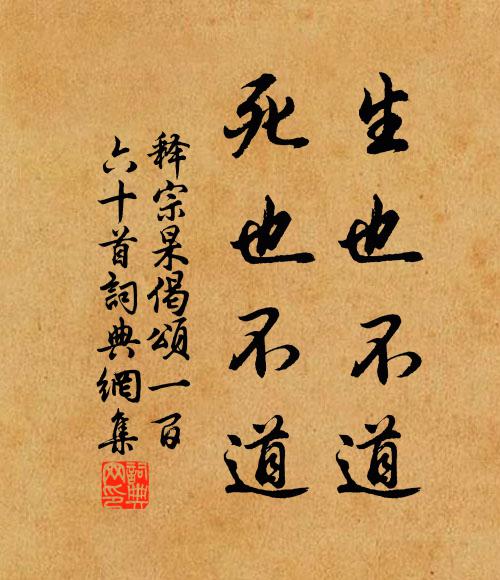 生也不道
死也不道
释宗杲偈頌一百
六十首詞典網集
詞典網印